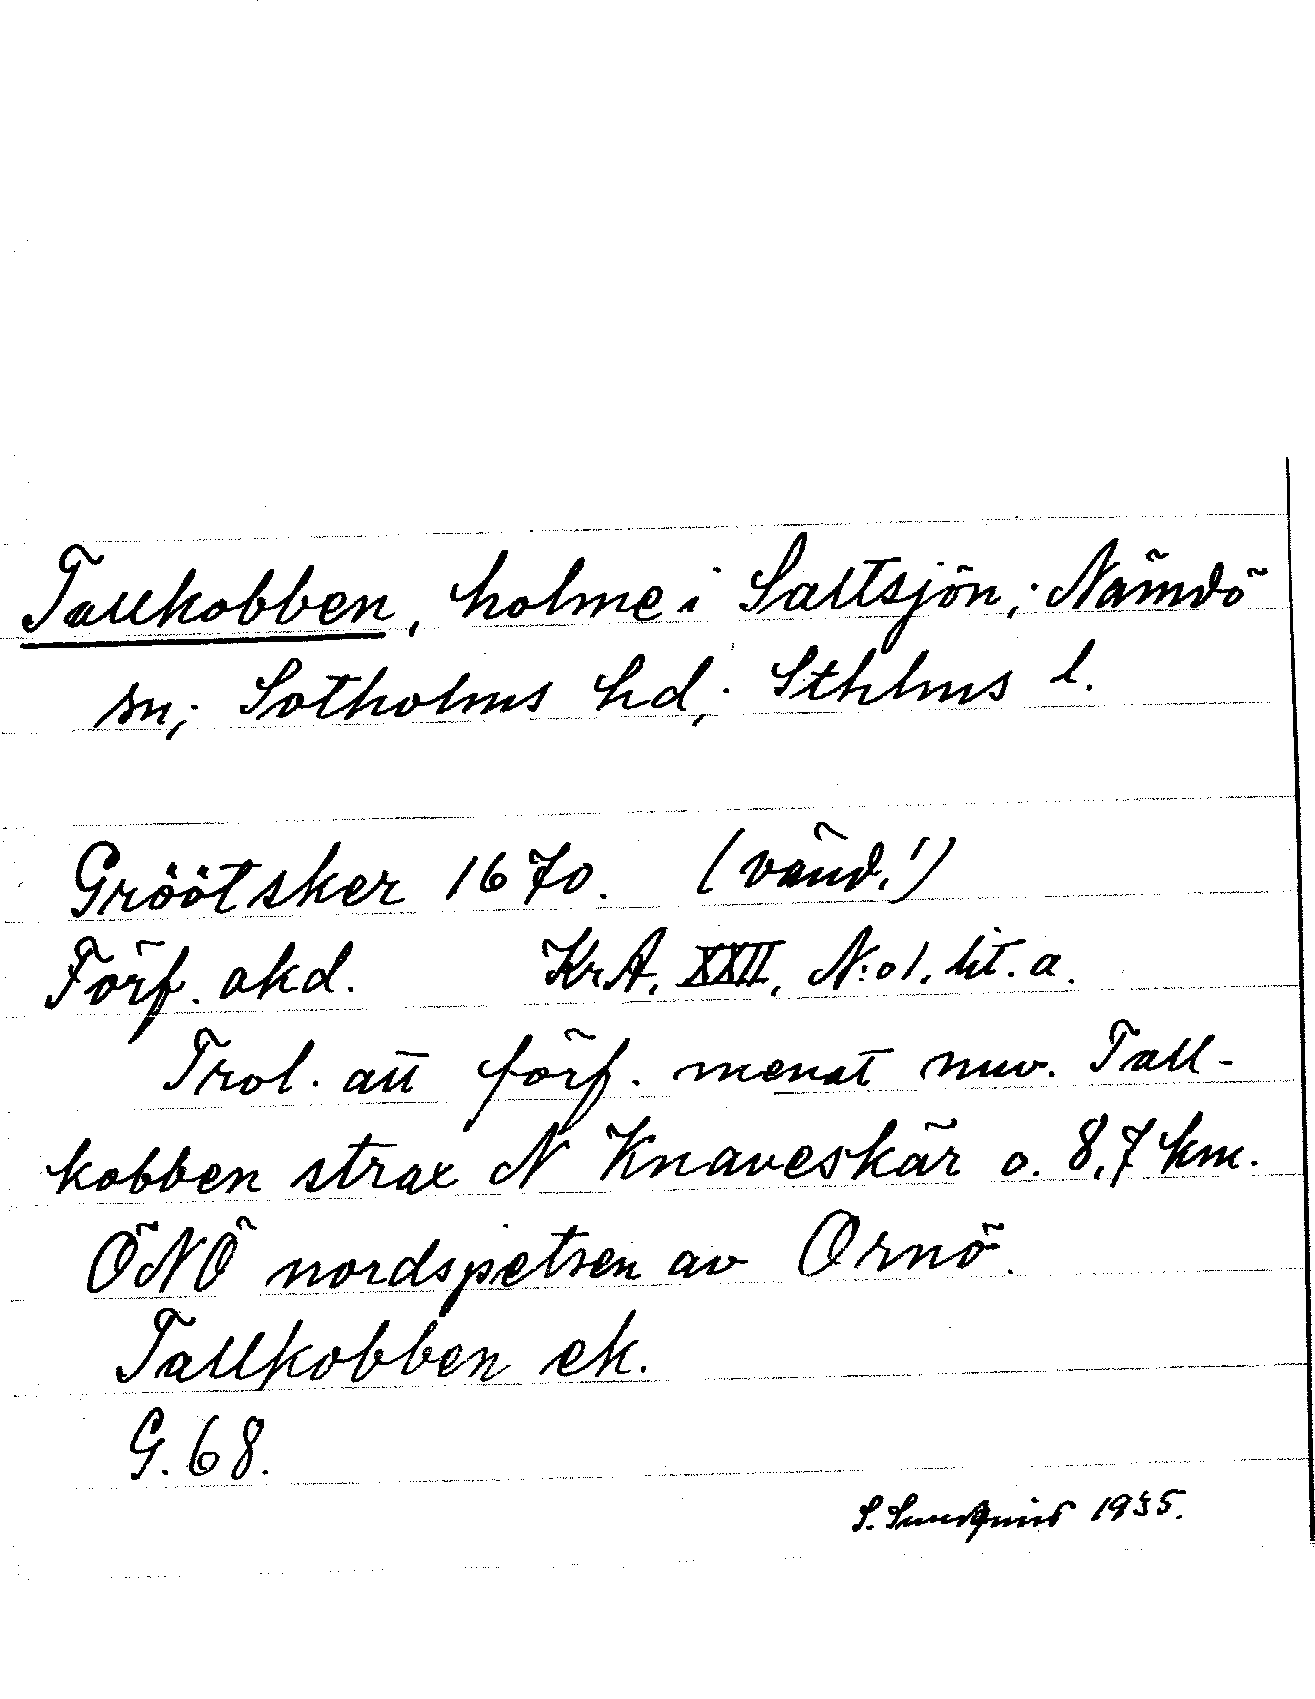 Tallkobben, holme i Saltsjön; Nämdö
sn; Sotholms hd; Sthlms l.
Gröötsker 1670. (vänd!)
Förf. okd. KrA, XXII, N:o 1. lit. a.
Trol. att förf. menat nuv. Tall-
kobben strax N Knaveskär o. 8,7 km.
ÖNÖ nordspetsen av Ornö.
Tallkobben ek.
G. 68.
S. Sundquist 1935.